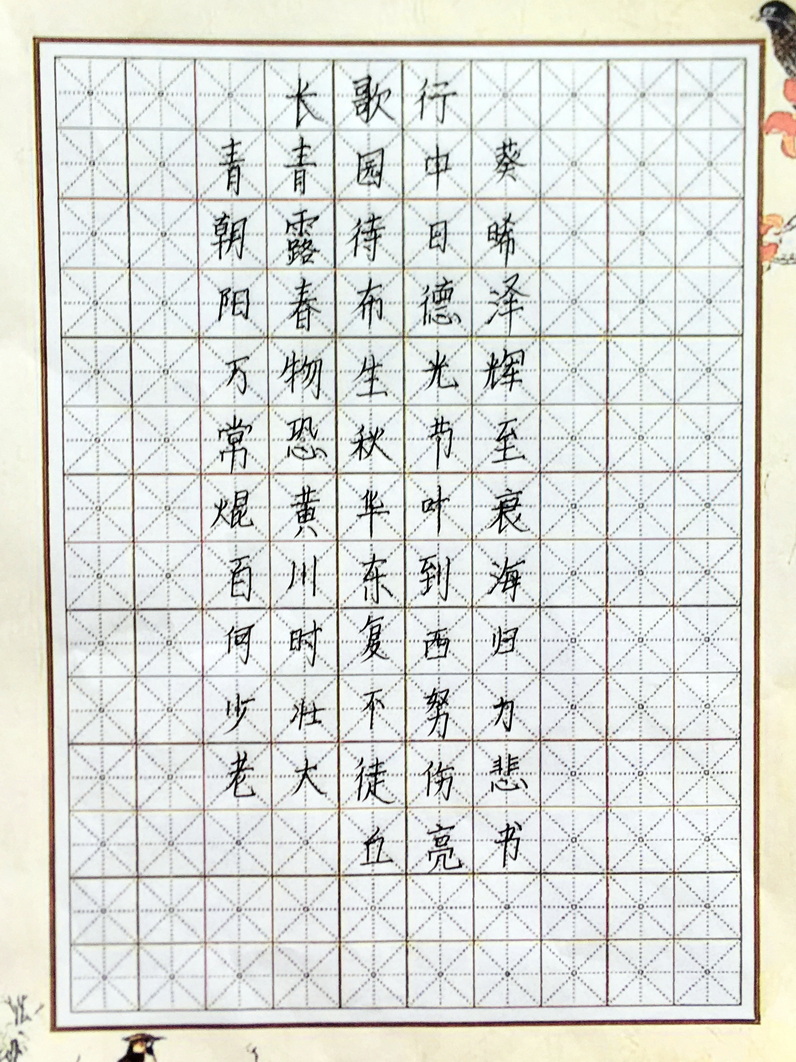 长歌行
青青园中葵
朝露待日晞
阳春布德泽
万物生光辉
常恐秋节至
焜黄华叶衰
百川东到海
何时复西归
少壮不努力
老大徒伤悲
丘亮书